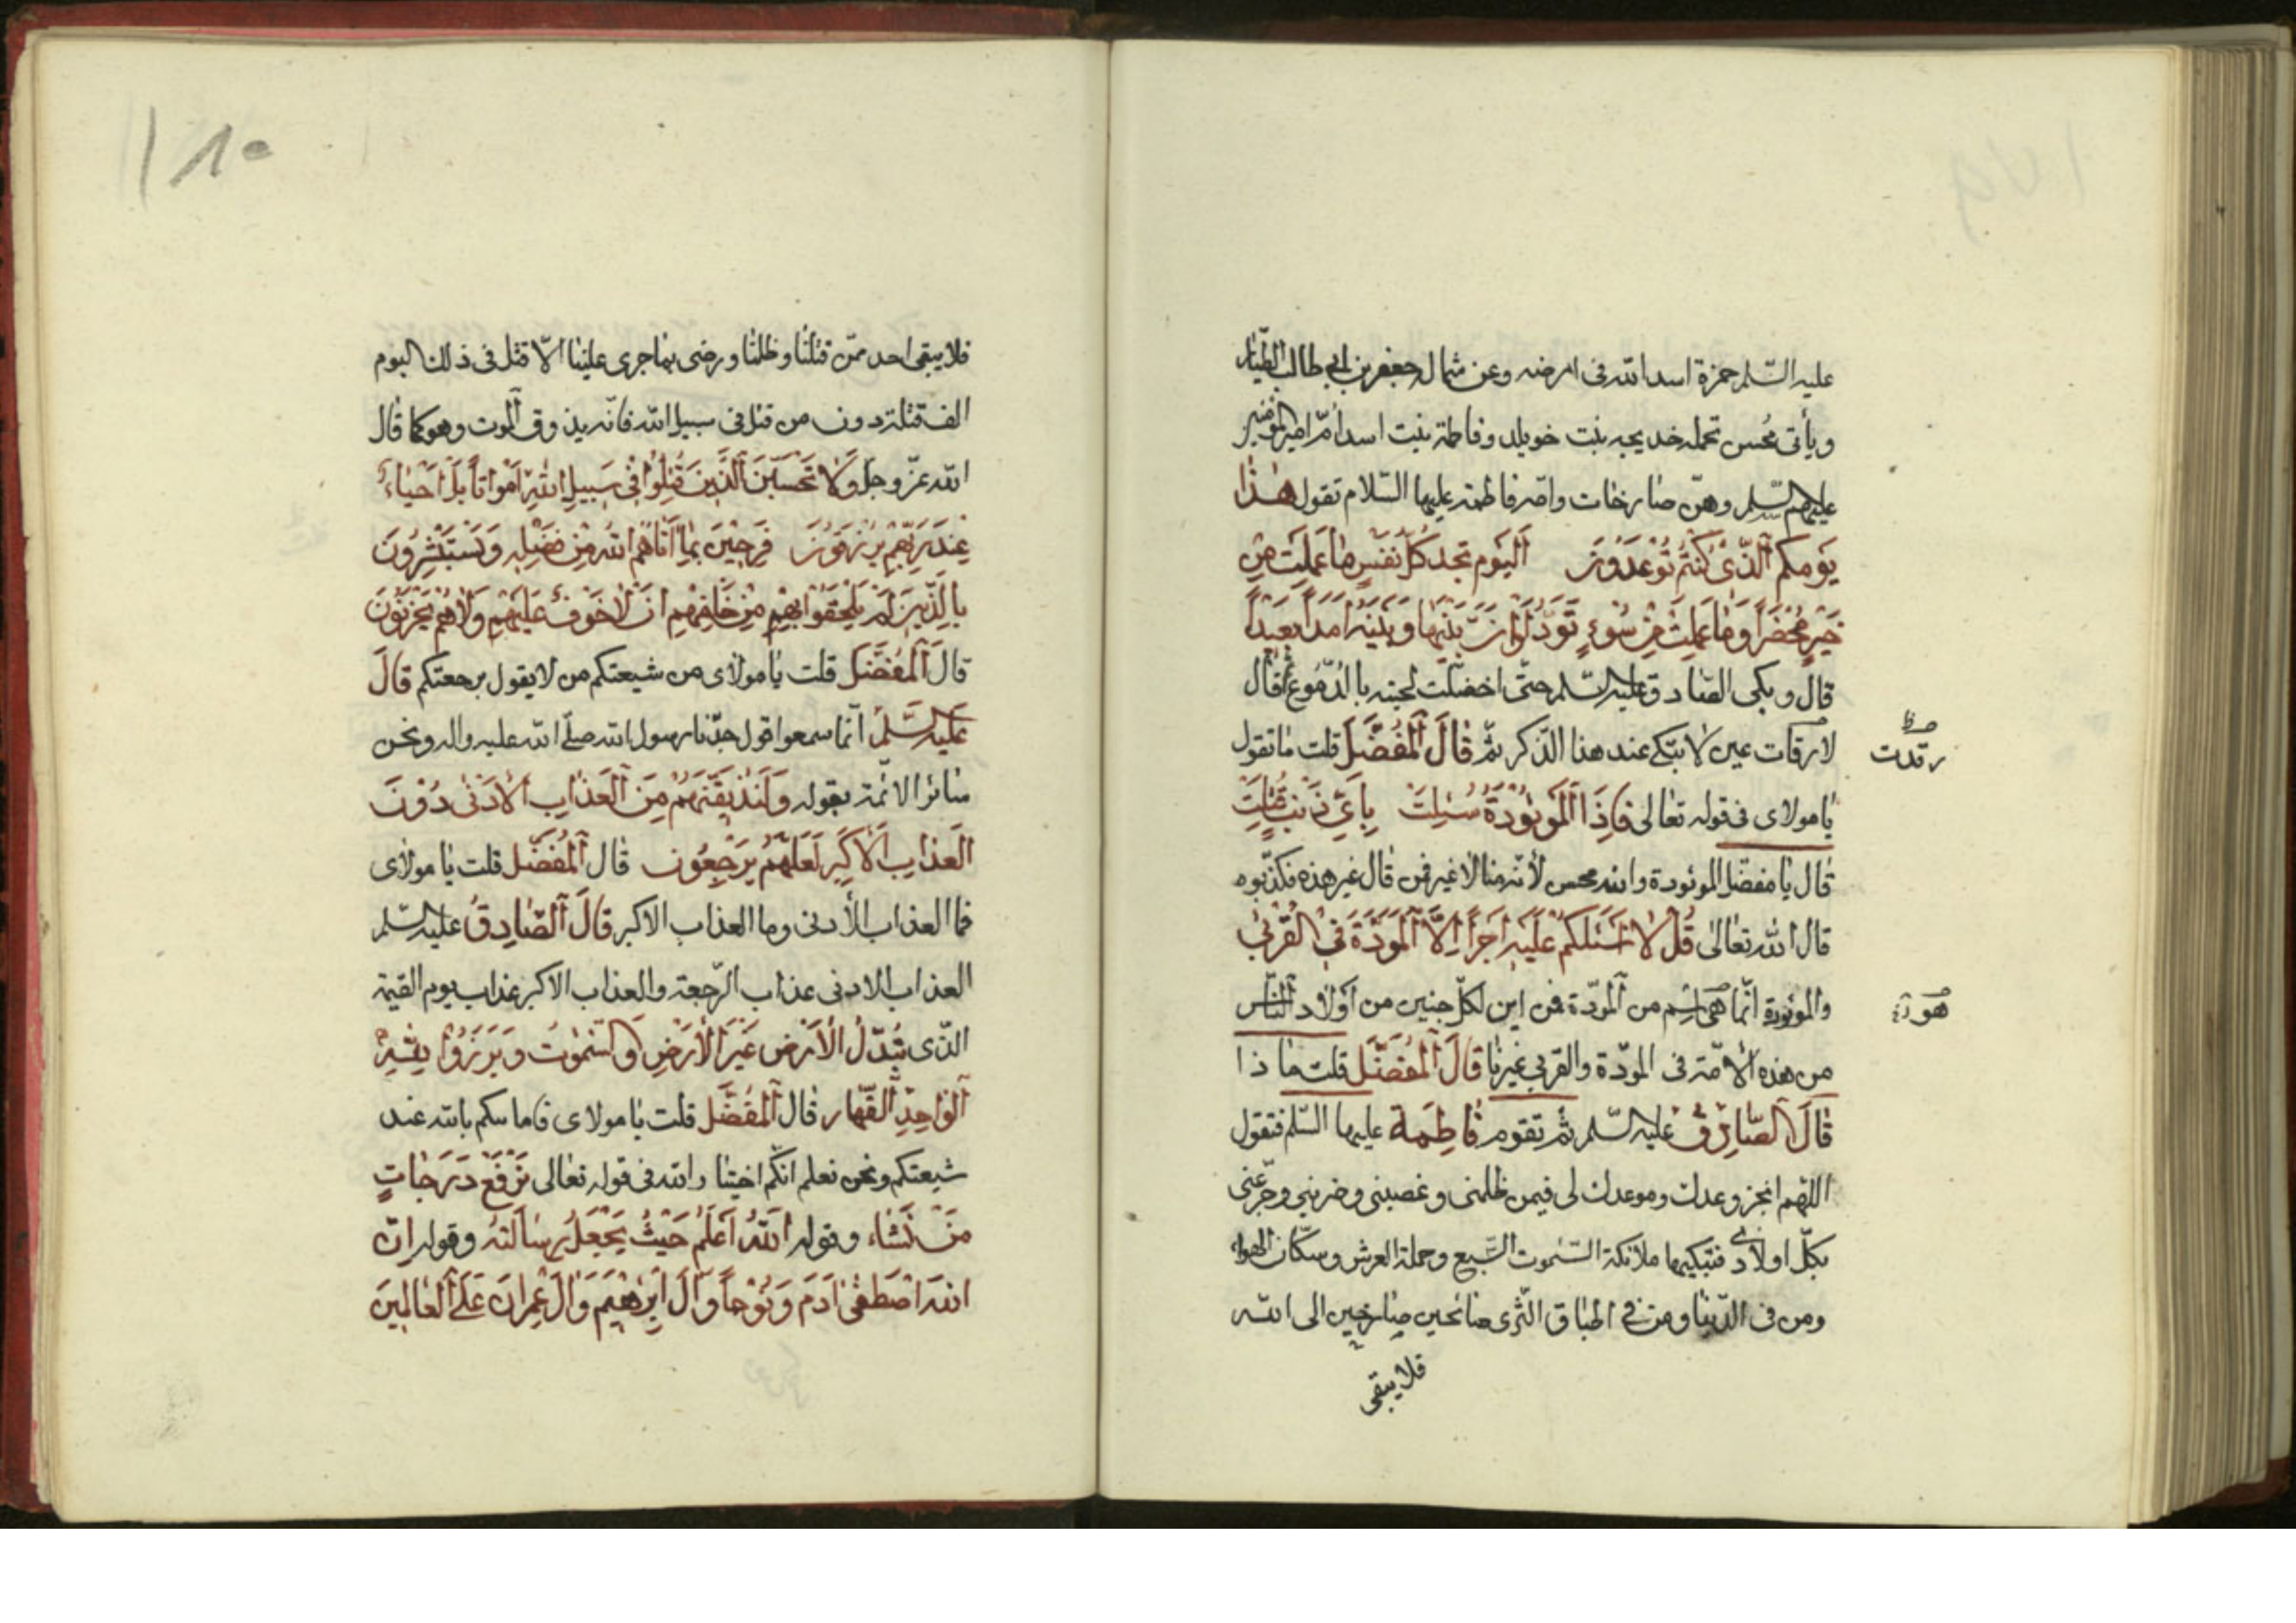 عليه السّلم حمزة اسد الله فى ارضه وعن شماله جعفر بن ابى طالب الطيّار
ويأتى محسن تحمله خديجه بنت خويلد وفاطمة بنت اسد أمّ امير المؤمنين
عليهم السّلم وهنّ صارخات وامّه فاطمة عليها السّلام تقول هٰذا
يَومكم ٱلّذى كُنتُم تُوعَدُونَ ٱليَوم تجد كلّ نفسٍ ما عَمِلَت مِن
خَيرٍ مُحْضَراً وَمٰا عَمِلَت مِن سُوءٍ تَوَدُّ لَوْ اَنَّ بَيْنَهٰا وَبَيْنَهُ اَمَداً بَعِيداً
قال وبكى الصّادق عليه السّلم حتّى اخضلّت لحيته بالدّموع ثم قال
لا رقات عين لا تبكى عند هذا الذّكر ثمّ قٰالَ ٱلْمُفَضَّلَ قلت ما تقول
رقدت
يٰا مولاى فى قوله تعالى فَاِذَا ٱلْمَوْئُودَةُ سُئِلَتْ بِاَىِّ ذَنْبٍ قُتِلَتْ
قٰال يٰا مفضّل الموئودة والله محسن لأنّه منّا لا غير فمن قال غير هذه فكذّبوه
قال الله تعٰالىٰ قُل لاٰ اَسْئَلُكُم عَلَيْهِ اَجْراً اِلاَّ ٱلْمَوَدَّةَ فِى الْقُرْبىٰ
والموئودة انّما هى اسم من ٱلمودّة فمن اين لكلّ جنين من اَوْلاٰد ٱلنّاس
هو
من هذه الأمّة فى المودّة والقربى غيرنٰا قٰالَ ٱلْمُفَضَّلَ قلت مٰا ذا
قٰالَ ٱلصّادِقُ عليه السّلم ثمّ تقوم فٰاطِمَة عليها السّلم فتقول
اللّهم انجز وعدك وموعدك لى فيمن ظلمنى وغصبنى وضربنى وجرّعنى
بكلّ اولادى فتبكيها ملائكة السّمٰوت السّبع وحملة العرش وسكّان الهواء
ومن فى الدّنيٰا ومن فى اطباق الثّرى صائحين صارخين الى الله
فلا يبقى
١٨٠
فلا يبقى احد ممّن قتلنا وظلمنا ورضى بما جرى علينا الاّ قتل فى ذلك اليوم
الف قتلة دون من قتل فى سبيل الله فانّه يذوق ٱلموت وهو كما قٰال
الله عزّ وجلّ وَلاٰ تَحْسَبَنَّ ٱلَّذِينَ قُتِلُوا فِى سَبِيلِ اللهِ اَمْوٰاتاً بَلْ اَحْيٰاءٌ
عِندَ رَبِّهِمْ يُرْزَقُونَ فَرِحِينَ بِمٰا آتٰاهُمُ اللهُ مِن فَضْلِهِ وَيَسْتَبْشِرُونَ
بِالَّذِينَ لَمْ يَلْحَقُوا بِهِم مِنْ خَلْفِهِم اَنْ لاٰ خَوْفٌ عَلَيْهِم وَلاٰ هُمْ يَحْزَنُونَ
قالَ ٱلْمُفَضَّل قلت يٰا مولاى من شيعتكم من لا يقول برجعتكم قٰالَ
عَلَيْهِ السَّلَمُ انّما سمعوا قول جدّنا رسول الله صلّى الله عليه واله ونحن
سٰائر الائمّة بقوله وَلَنُذِيقَنَّهُم مِنَ ٱلْعَذٰابِ ٱلاْدَنىٰ دُوْنَ
ٱلْعَذٰابِ ٱلاْكْبَرِ لَعَلَّهُمْ يَرْجِعُون قٰال ٱلْمُفَضَّل قلت يٰا مولاى
فما العذاب الأدنى وما العذاب الاكبر قٰالَ ٱلصّٰادِقُ عليه السّلم
العذاب الادنى عذاب الرّجعة والعذاب الاكبر عذاب يوم القيمة
الّذى تُبَدَّلُ الْأَرْض غَيْرَ الْأَرْضِ وَالسَّمٰوٰتُ وَبَرَزُوْا لِلّٰهِ
ٱلْوٰاحِدِ ٱلْقَهّٰار قٰال ٱلْمُفَضَّل قلت يٰا مولاى فامامتكم بالله عند
شيعتكم ونحن نعلم انّكم والله فى قوله تعٰالى نَرْفَعُ دَرَجٰاتٍ
مَنْ نَشٰاء وقوله اَللهُ اَعْلَمُ حَيْثُ يَجْعَلُ رِسٰالَتَهُ وقوله اِنَّ
اللهَ اصْطَفىٰ اٰدَمَ وَنُوْحاً وَآلَ اِبْرٰهِيْمَ وَاٰلَ عِمْرانَ عَلَى ٱلْعٰالَمِينَ